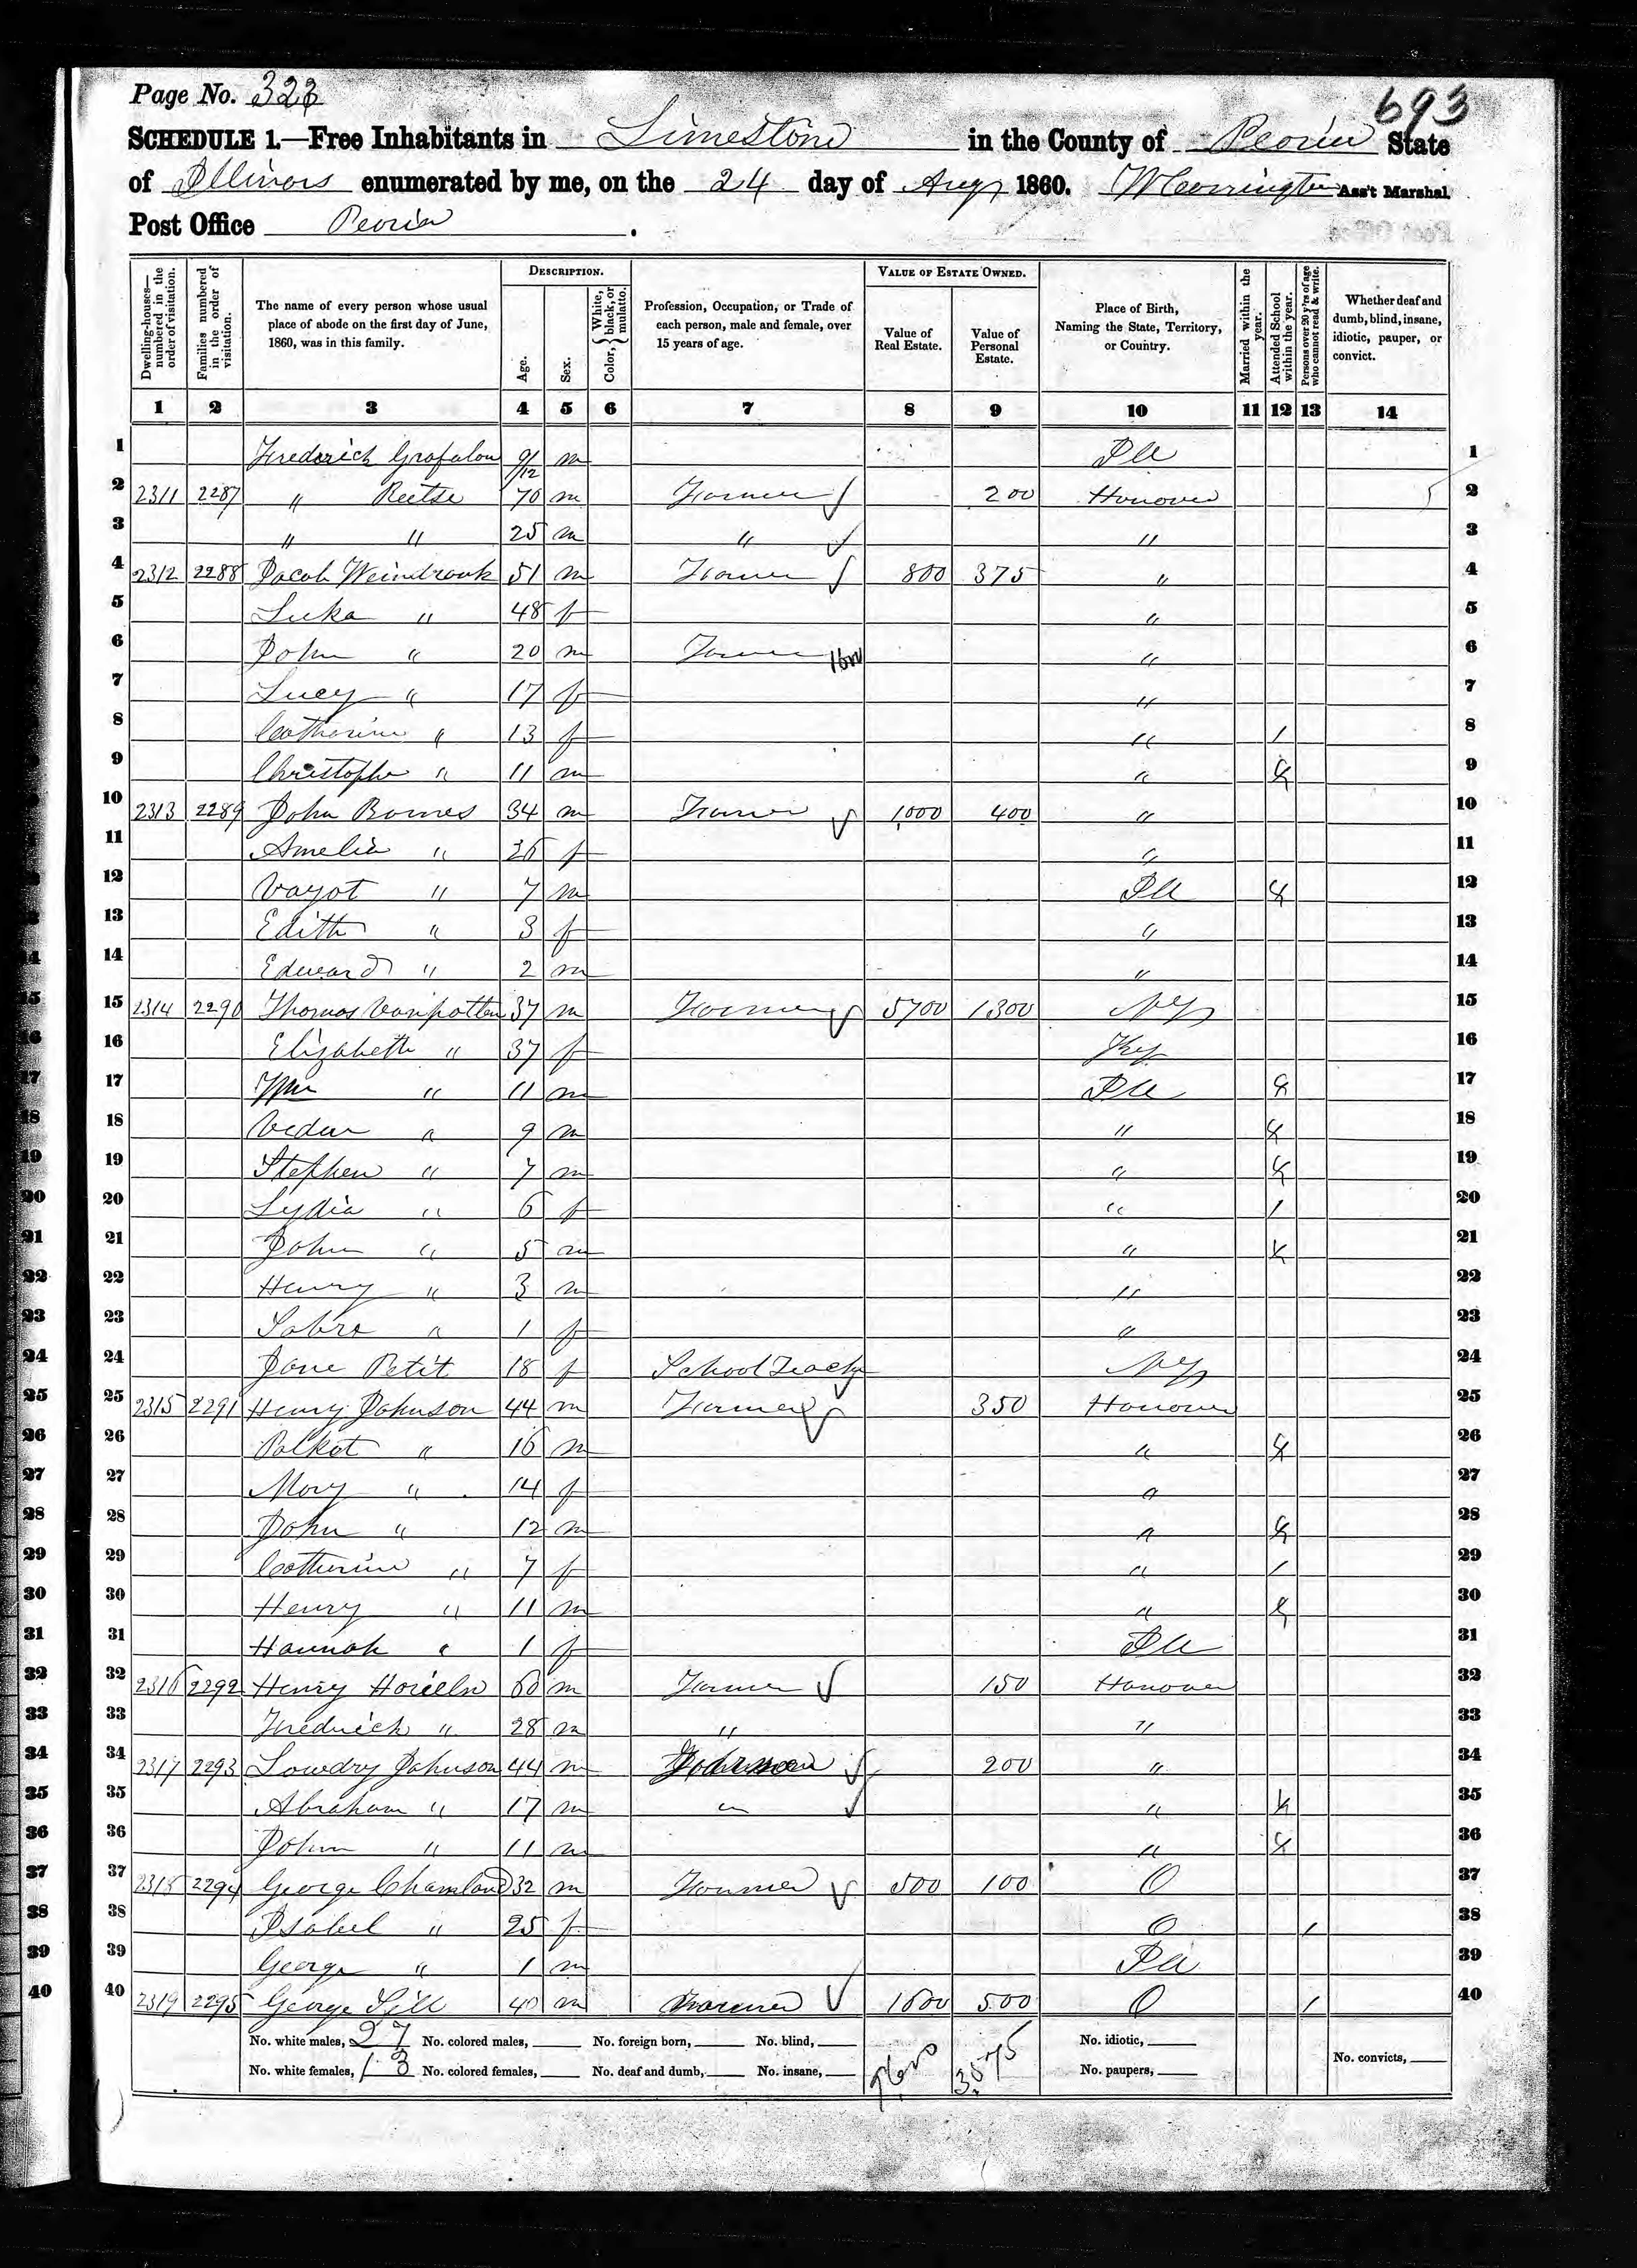 Page No. 323
693
SCHEDULE 1.—Free Inhabitants in Limestone in the County of Peoria State
of Illinois enumerated by me, on the 24 day of Aug 1860. Ass't Marshal.
Post Office Peoria.
Dwelling-houses—numbered in the order of visitation.
Families numbered in the order of visitation.
The name of every person whose usual place of abode on the first day of June, 1860, was in this family.
DESCRIPTION.
Age.
Sex.
Color, { White, black, or mulatto.
Profession, Occupation, or Trade of each person, male and female, over 15 years of age.
VALUE OF ESTATE OWNED.
Value of Real Estate.
Value of Personal Estate.
Place of Birth, Naming the State, Territory, or Country.
Married within the year.
Attended School within the year.
Persons over 20 y'rs of age who cannot read & write.
Whether deaf and dumb, blind, insane, idiotic, pauper, or convict.
1 2 3 4 5 6 7 8 9 10 11 12 13 14
1 Frederick 9/12 m Ill 1
2 2311 2287 " 70 m Farmer 200 Hanover 2
3 " " 25 m " " 3
4 2312 2288 Jacob 51 m Farmer 800 375 " 4
5 " 48 f " 5
6 John " 20 m Farmer " 6
7 Lucy " 17 f " 7
8 Catherine " 13 f " / 8
9 Christopher " 11 m " 9
10 2313 2289 John 34 m Farmer 1000 400 " 10
11 Amelia " 36 f " 11
12 " 7 m Ill 12
13 Edith " 3 f " 13
14 Edward " 2 m " 14
15 2314 2290 Thomas Vanpatten 37 m Farmer 5700 1300 NY 15
16 Elizabeth " 37 f Ky 16
17 Wm " 11 m Ill 17
18 " 9 m " 18
19 Stephen " 7 m " 19
20 Lydia " 6 f " / 20
21 John " 5 m " 21
22 Henry " 3 m " 22
23 " 1 f " 23
24 Jane Petit 18 f School Teacher NY 24
25 2315 2291 Henry Johnson 44 m Farmer 350 Hanover 25
26 " 16 m " 26
27 Mary " 14 f " 27
28 John " 12 m " 28
29 Catherine " 7 f " / 29
30 Henry " 11 m " 30
31 Hannah " 1 f Ill 31
32 2316 2292 Henry 60 m Farmer 150 Hanover 32
33 Fredrick " 28 m " " 33
34 2317 2293 Johnson 44 m 200 " 34
35 Abraham " 17 m " " 35
36 John " 11 m " 36
37 2318 2294 George 32 m Farmer 500 100 O 37
38 Isabel " 25 f O / 38
39 George " 1 m Ill 39
40 2319 2295 George 40 m Farmer 1600 500 O / 40
No. white males, 27 No. colored males, No. foreign born, No. blind, No. idiotic,
No. white females, 13 No. colored females, No. deaf and dumb, No. insane, 9600 3575 No. paupers, No. convicts,